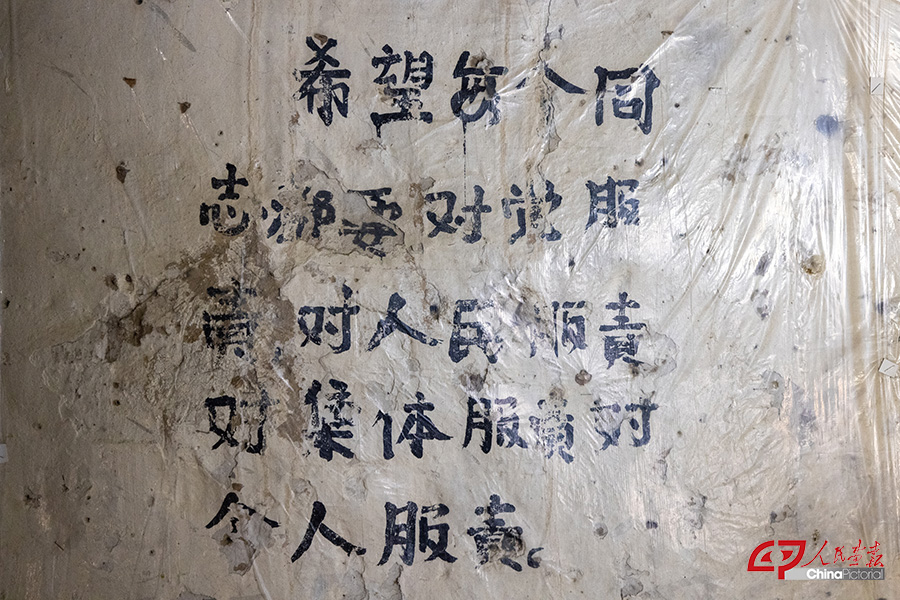 希望每个同
志都要对党服
责,对人民服责
对集体服责对
个人服责。
人民画报
ChinaPictorial